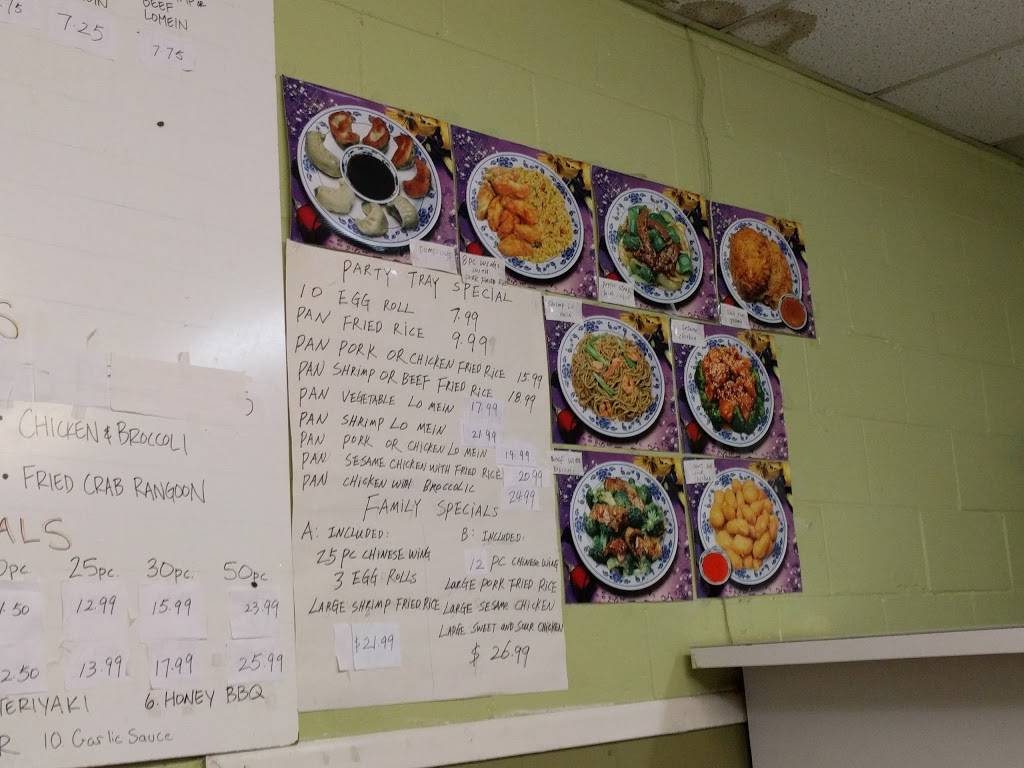 .75
7.25
BEEF
LOMEIN
7.75
S
• CHICKEN & BROCCOLI
• FRIED CRAB RANGOON
ALS
0pc. 25pc. 30pc. 50pc
1.50 12.99 15.99 23.99
2.50 13.99 17.99 25.99
TERIYAKI 6. HONEY BBQ
R 10 Garlic Sauce
PARTY TRAY SPECIAL
10 EGG ROLL 7.99
PAN FRIED RICE 9.99
PAN PORK OR CHICKEN FRIED RICE 15.99
PAN SHRIMP OR BEEF FRIED RICE 18.99
PAN VEGETABLE LO MEIN 17.99
PAN SHRIMP LO MEIN 21.99
PAN PORK OR CHICKEN LO MEIN 19.99
PAN SESAME CHICKEN WITH FRIED RICE 20.99
PAN CHICKEN WITH BROCCOLIC 24.99
FAMILY SPECIALS
A: INCLUDED:
25 PC CHINESE WING
3 EGG ROLLS
LARGE SHRIMP FRIED RICE
$21.99
B: INCLUDED:
12 PC CHINESE WING
LARGE PORK FRIED RICE
LARGE SESAME CHICKEN
LARGE SWEET AND SOUR CHICKEN
$26.99
DUMPLING
8PC WINGS
WITH
PORK FRIED RICE
SHRIMP LO
MEIN
SESAME
CHICKEN
BEEF WITH